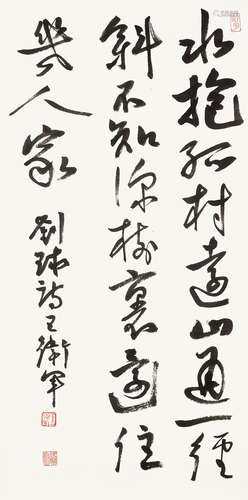 水抱孤村遠山通一徑
斜不知深樹裏還住
幾人家
劉球詩王衛軍